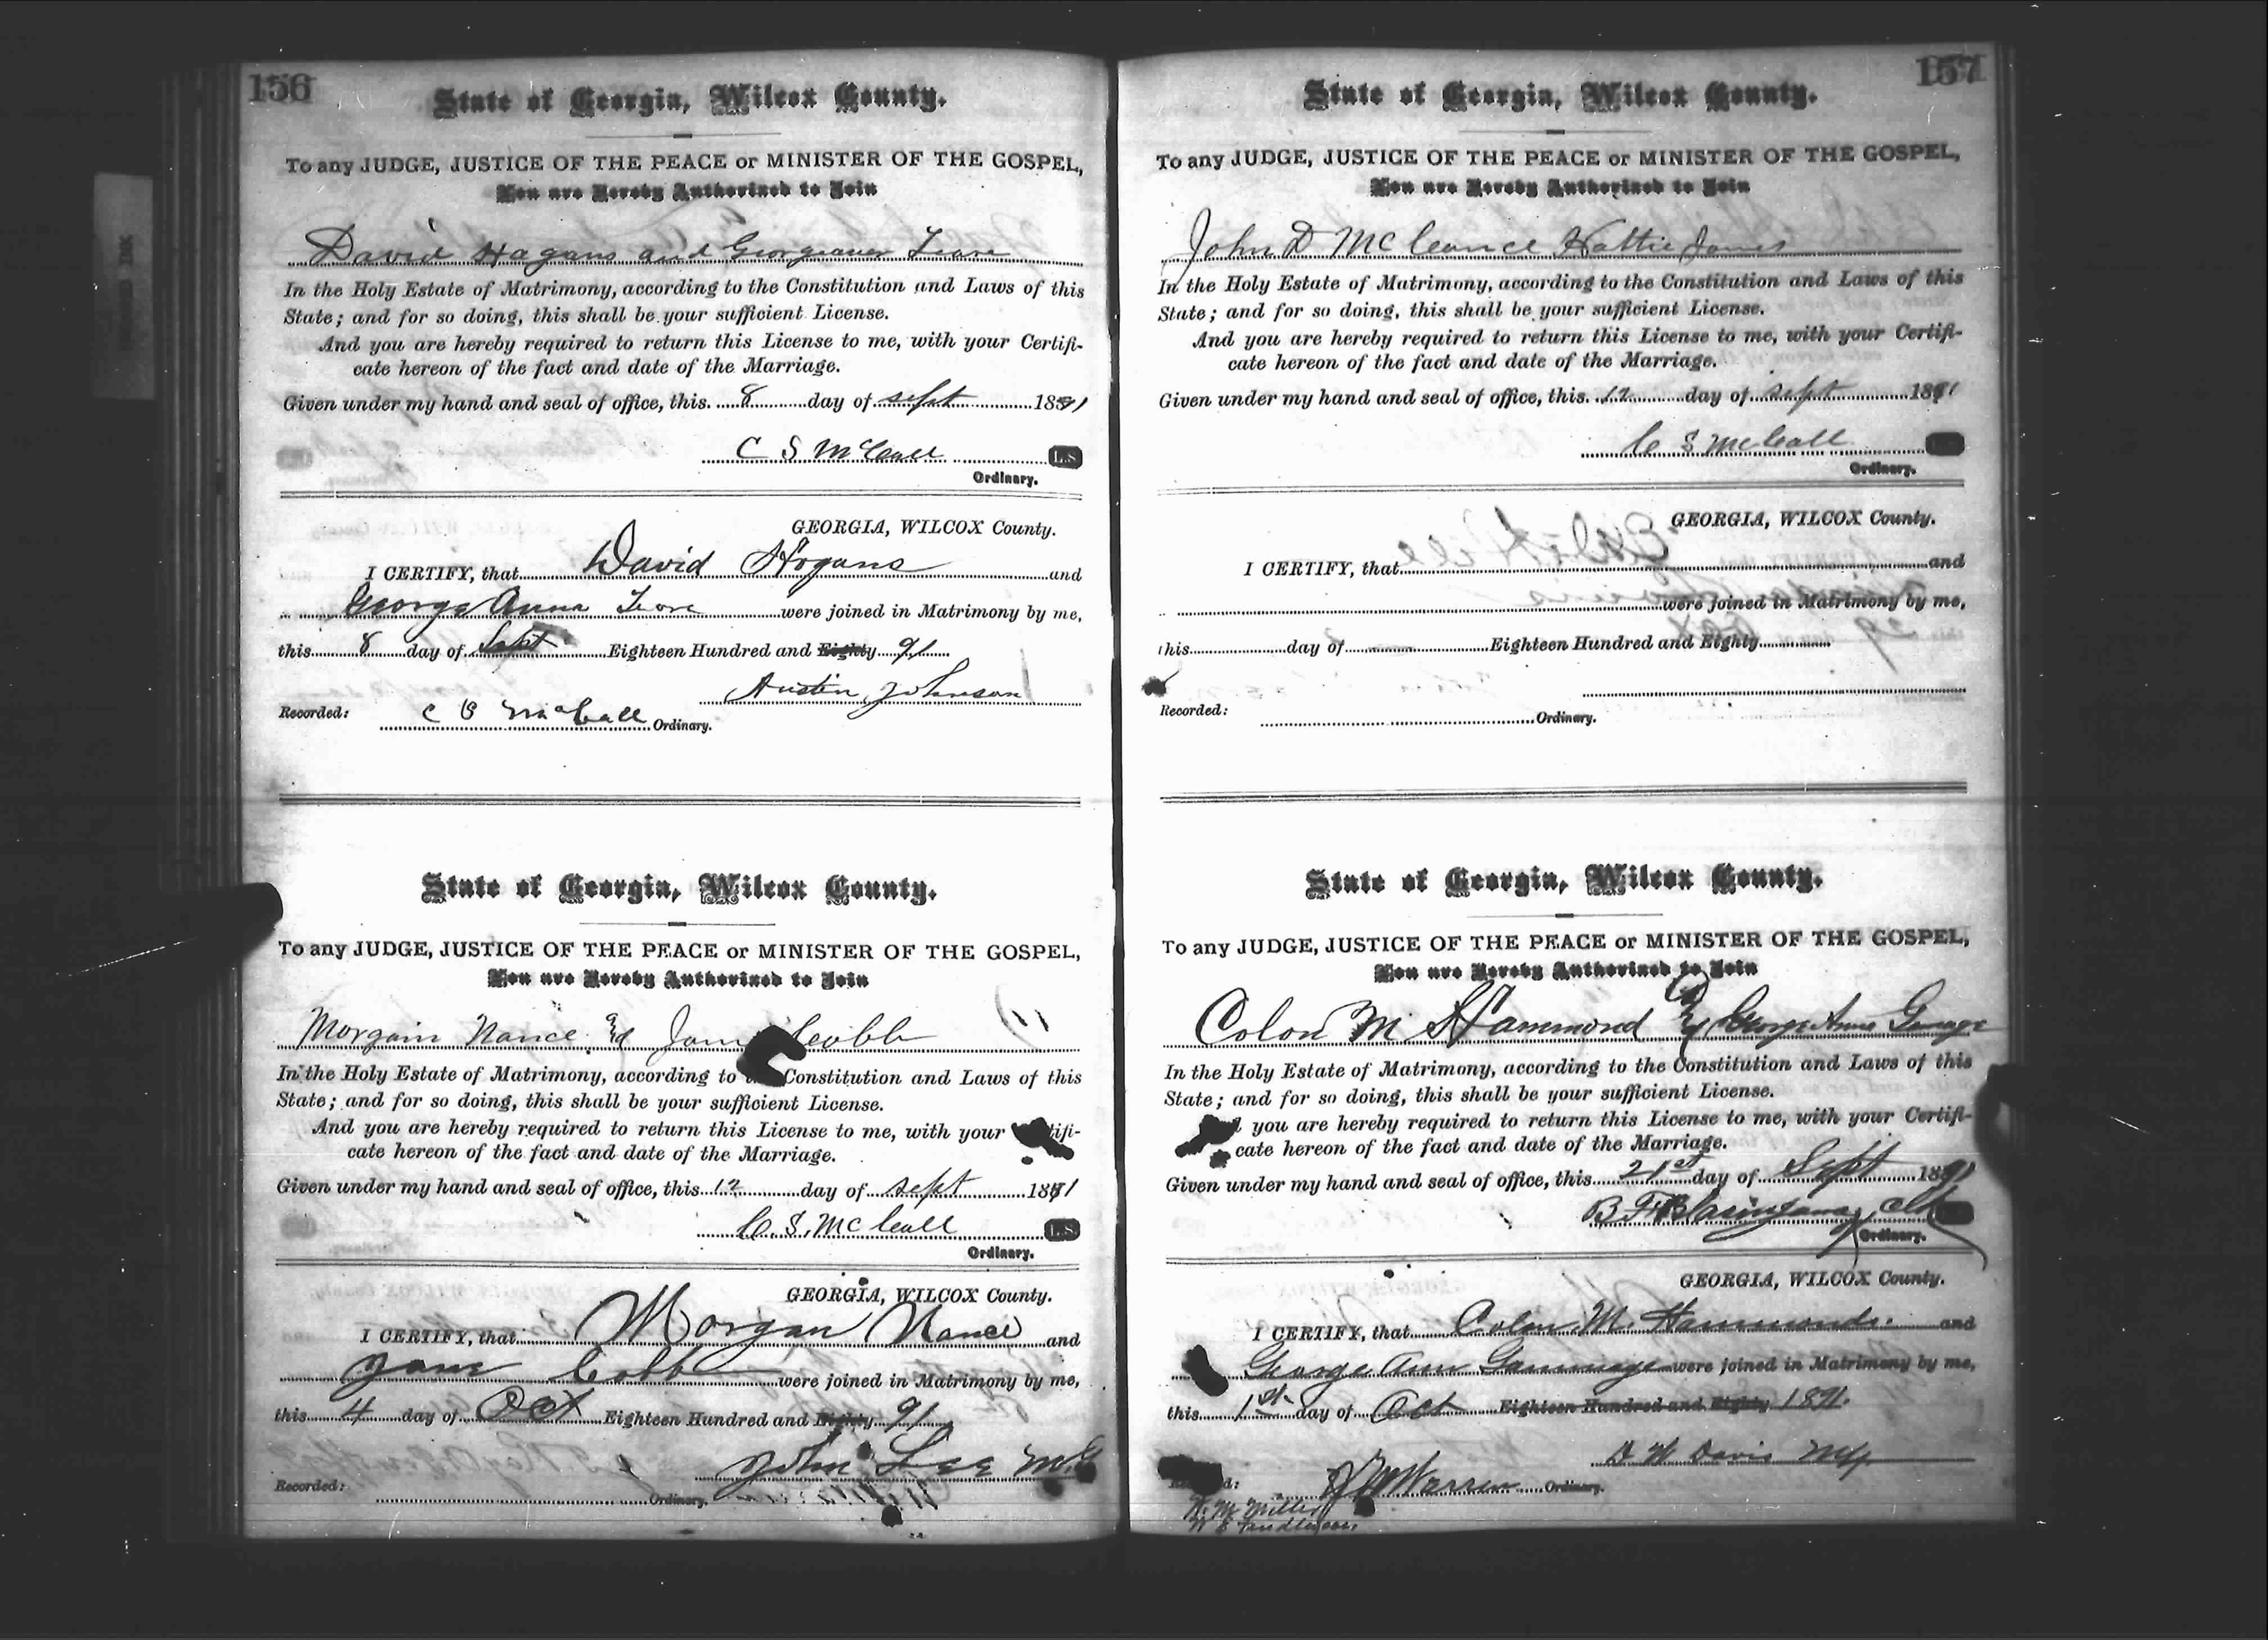 156
State of Georgia, Wilcox County.
To any JUDGE, JUSTICE OF THE PEACE or MINISTER OF THE GOSPEL,
You are Hereby Authorized to Join
David Hagans and Georgeaner
In the Holy Estate of Matrimony, according to the Constitution and Laws of this
State; and for so doing, this shall be your sufficient License.
And you are hereby required to return this License to me, with your Certifi-
cate hereon of the fact and date of the Marriage.
Given under my hand and seal of office, this 8 day of sept 1891
C S McCall L.S.
Ordinary.
GEORGIA, WILCOX County.
I CERTIFY, that David Hogans and
George Anna were joined in Matrimony by me,
this 8 day of Sept Eighteen Hundred and Eighty 91
Austin Johnson
Recorded: C S McCall Ordinary.
State of Georgia, Wilcox County.
To any JUDGE, JUSTICE OF THE PEACE or MINISTER OF THE GOSPEL,
You are Hereby Authorized to Join
Morgain Nance & Jane Cobb
In the Holy Estate of Matrimony, according to Constitution and Laws of this
State; and for so doing, this shall be your sufficient License.
And you are hereby required to return this License to me, with your Certifi-
cate hereon of the fact and date of the Marriage.
Given under my hand and seal of office, this 12 day of sept 1891
C. S. McCall L.S.
Ordinary.
GEORGIA, WILCOX County.
I CERTIFY, that Morgan Nance and
Jane Cobb were joined in Matrimony by me,
this 4 day of Oct Eighteen Hundred and Eighty 91
John Lee M.G
Recorded: Ordinary.
157
State of Georgia, Wilcox County.
To any JUDGE, JUSTICE OF THE PEACE or MINISTER OF THE GOSPEL,
You are Hereby Authorized to Join
John D Hattie Jones
In the Holy Estate of Matrimony, according to the Constitution and Laws of this
State; and for so doing, this shall be your sufficient License.
And you are hereby required to return this License to me, with your Certifi-
cate hereon of the fact and date of the Marriage.
Given under my hand and seal of office, this 12 day of sept 1891
C S McCall
Ordinary.
GEORGIA, WILCOX County.
I CERTIFY, that and
were joined in Matrimony by me,
this day of Eighteen Hundred and Eighty
Recorded: Ordinary.
State of Georgia, Wilcox County.
To any JUDGE, JUSTICE OF THE PEACE or MINISTER OF THE GOSPEL,
You are Hereby Authorized to Join
Colon M Hammond & George Anne
In the Holy Estate of Matrimony, according to the Constitution and Laws of this
State; and for so doing, this shall be your sufficient License.
you are hereby required to return this License to me, with your Certifi-
cate hereon of the fact and date of the Marriage.
Given under my hand and seal of office, this 21st day of Sept 1891
B F
Ordinary.
GEORGIA, WILCOX County.
I CERTIFY, that Colon M. Hammonds. and
George Ann Gammage were joined in Matrimony by me,
this 1st day of Oct Eighteen Hundred and Eighty 1891.
D W Davis
Warren Ordinary.